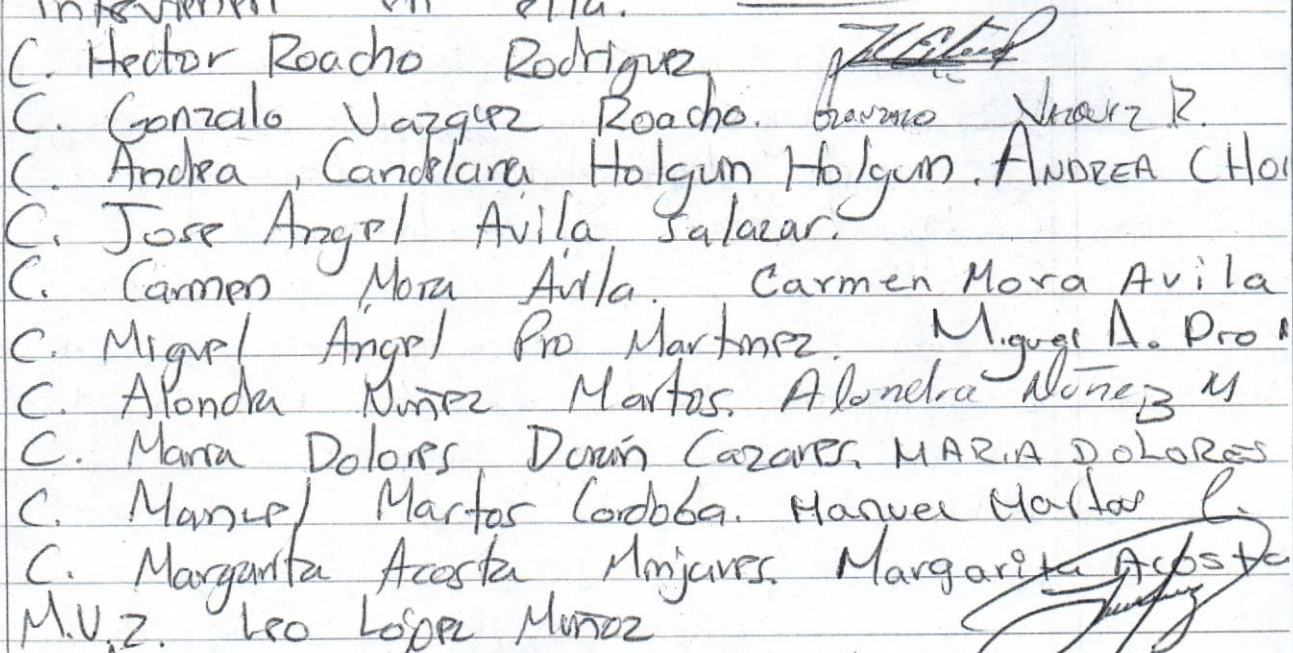 intervienen en ella.
C. Hector Roacho Rodriguez
C. Gonzalo Vazquez Roacho. Gonzalo Vazquez R.
C. Andrea Candelara Holguin Holguin. ANDREA CHOL
C. Jose Angel Avila Salazar.
C. Carmen Mora Avila. Carmen Mora Avila
C. Miguel Angel Pro Martinez. Miguel A. Pro M
C. Alondra Nuñez Martos. Alondra Nuñez M
C. Maria Dolores Durán Cazares. MARIA DOLORES
C. Manuel Martos Cordoba. Manuel Martos C.
C. Margarita Acosta Minjares. Margarita Acosta
M.V.Z. Leo López Muñoz